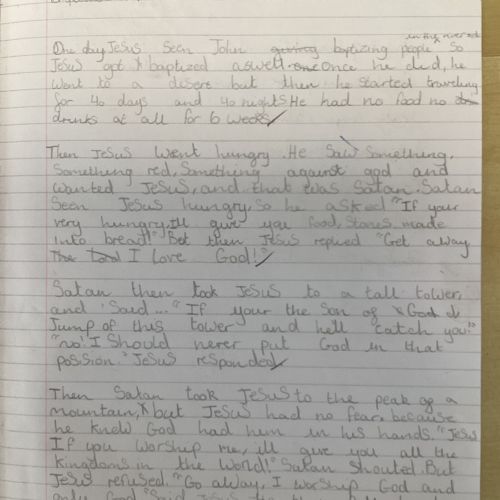 One day Jesus seen John baptizing people in the river so
Jesus got baptized aswell. Once he did, he
went to a desert but then he started traveling
for 40 days and 40 nights. He had no food no
drinks at all for 6 weeks
Then Jesus went hungry. He saw something,
Something red, Something against god and
wanted Jesus, and that was Satan. Satan
Seen Jesus hungry, so he asked "If your
very hungry, Ill give you food, Stones made
into bread!" But then Jesus replied "Get away
I love God!"
Satan then took Jesus to a tall tower,
and Said..." If your the Son of God
Jump of this tower and he'll catch you!"
"no! I Should never put God in that
possion." Jesus responded
Then Satan took Jesus to the peak of a
mountain, but Jesus had no fear, because
he knew God had him in his hands. "Jesus
If you worship me, ill give you all the
kingdoms in the world!" Satan Shouted. But
Jesus refused. "Go away, I worship God and
only God" Said Jesus